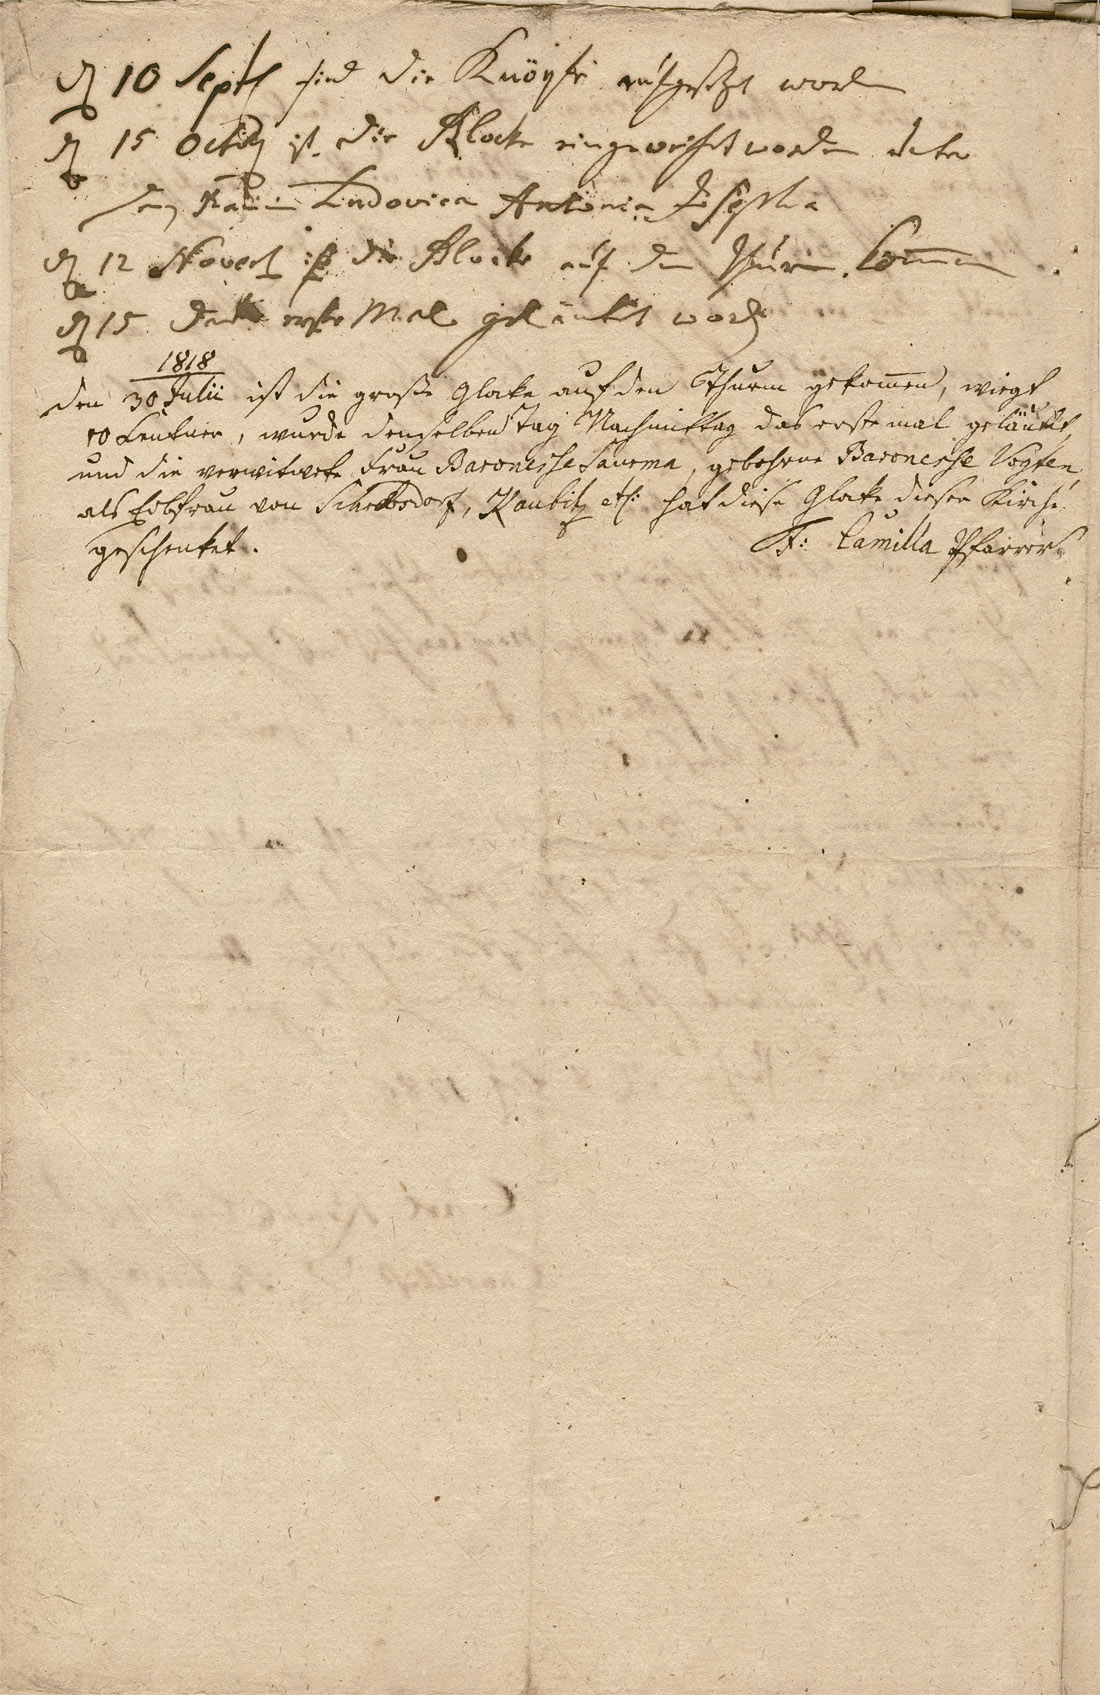 d 10 Sept sind die Knöpfe aufgesetzt word
d 15 Octob ist die Klocke eingeweihet worden unter
dem Namen Ludovica Antonia Josepha
d 12 Novemb ist die Klocke auf den Thurm komen
d 15 das erste Mal geläutet word
1818
den 30 Julii ist die große Glocke auf den Thurm gekomen, wiegt
10 Centner, wurde denselben Tag Nachmittag das erste mal geläutet,
und die verwitwete Frau Baronesse Saurma, gebohrne Baronesse Vogten
als Erbfrau von Kaubitz etc: hat diese Glocke dieser Kirche
geschenket.
F: Camilla Pfarrer